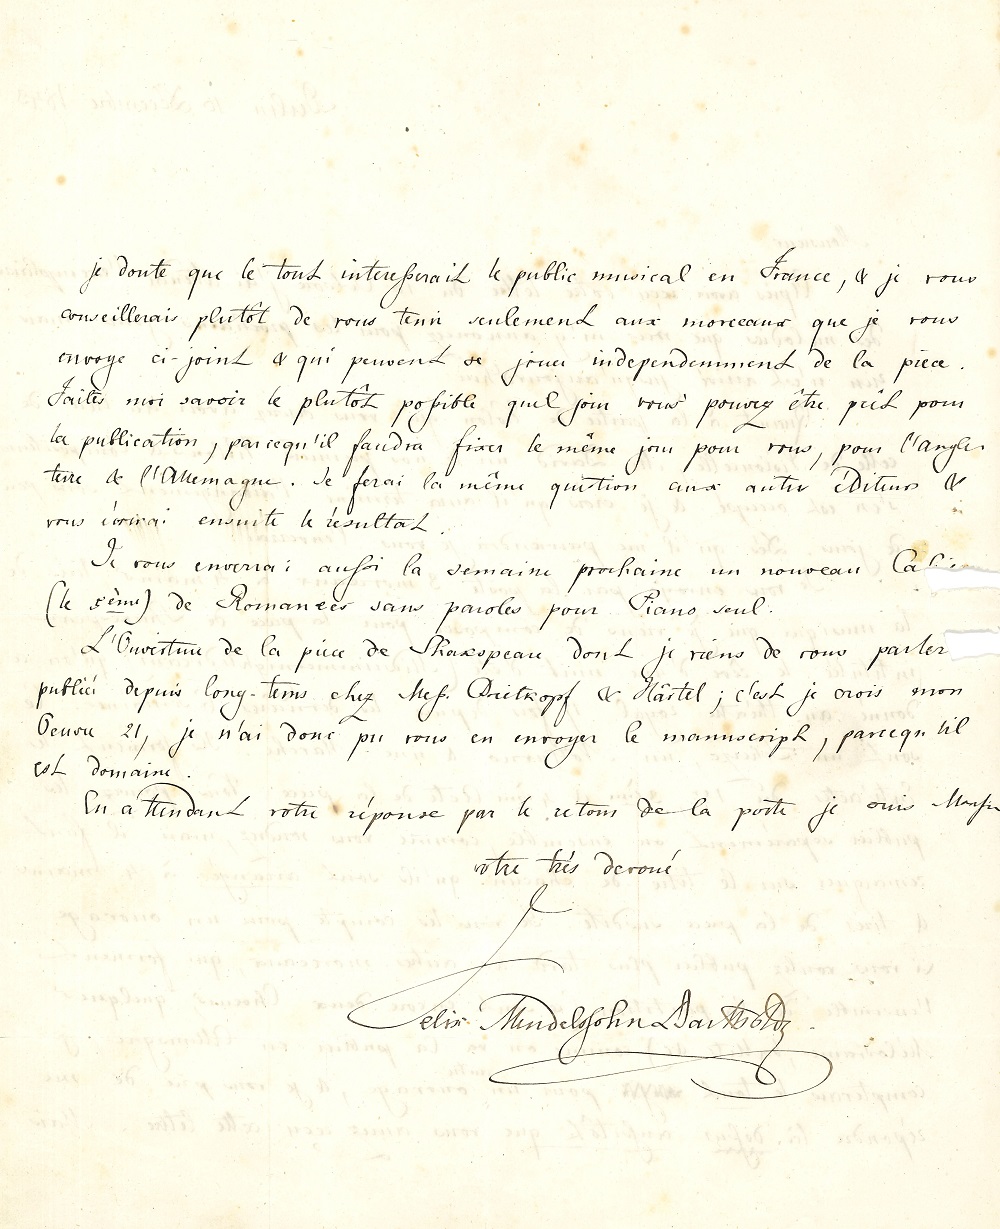 je doute que le tout interesserait le public musical en France, & je vous
conseillerais plutôt de vous tenir seulement aux morceaux que je vous
envoye ci-joint & qui peuvent se jouer independemment de la pièce.
Faites moi savoir le plutôt possible quel jour vous pouvez être prêt pour
la publication, parcequ'il faudra fixer le même jour pour vous, pour l'Angle
terre & l'Allemagne. Je ferai la même question aux autres éditeurs &
vous écrirai ensuite le résultat.
Je vous enverrai aussi la semaine prochaine un nouveau Cahier
(le 5ème) de Romances sans paroles pour Piano seul.
L'Ouverture de la pièce de Shakspeare dont je viens de vous parler
publiée depuis long-tems chez Mess. Breitkopf & Härtel; c'est je crois mon
Oeuvre 21, je n'ai donc pu vous en envoyer le manuscript, parcequ'il
est domaine.
En attendant votre réponse par le retour de la poste je suis
votre très devoué
Felix Mendelssohn Bartholdy.